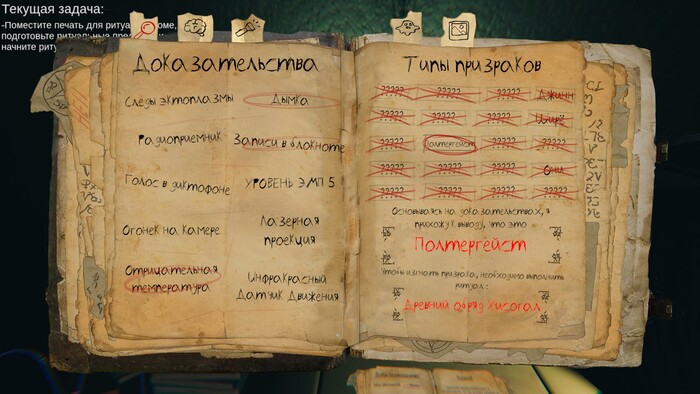 Текущая задача:
-Поместите печать для ритуа
подготовьте ритуальные пред
начните риту
Доказательства
Следы эктоплазмы
Дымка
Радиоприемник
Записи в блокноте
Голос в диктофоне
УРОВЕНЬ ЭМП 5
Огонек на камере
Лазерная
проекция
Отрицательная
температура
Инфракрасный
Датчик Движения
Типы призраков
????? ????? ????? Джинн
????? ????? ?????
????? Полтергейст ????? ?????
????? ????? ????? Они
????? ????? ????? ?????
Основываясь на доказательствах, я
прихожу к выводу, что это
Полтергейст
Чтобы изгнать призрака, необходимо выполнить
ритуал:
Древний обряд Хисогал